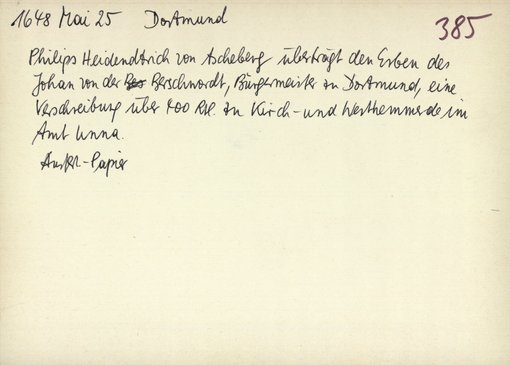 1648 Mai 25 Dortmund
385
Philips Heidendrich von Ascheberg überträgt den Erben des
Johan von der Berswordt, Bürgermeister zu Dortmund, eine
Verschreibung über 400 Rtl. zu Kirch- und Westhemmerde im
Amt Unna.
Papier